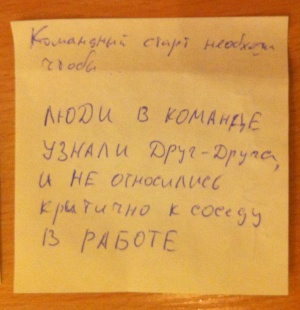 Командный старт необходим
чтобы
ЛЮДИ В КОМАНДЕ
УЗНАЛИ Друг-Друга,
И НЕ ОТНОСИЛИСЬ
критично к соседу
В РАБОТЕ